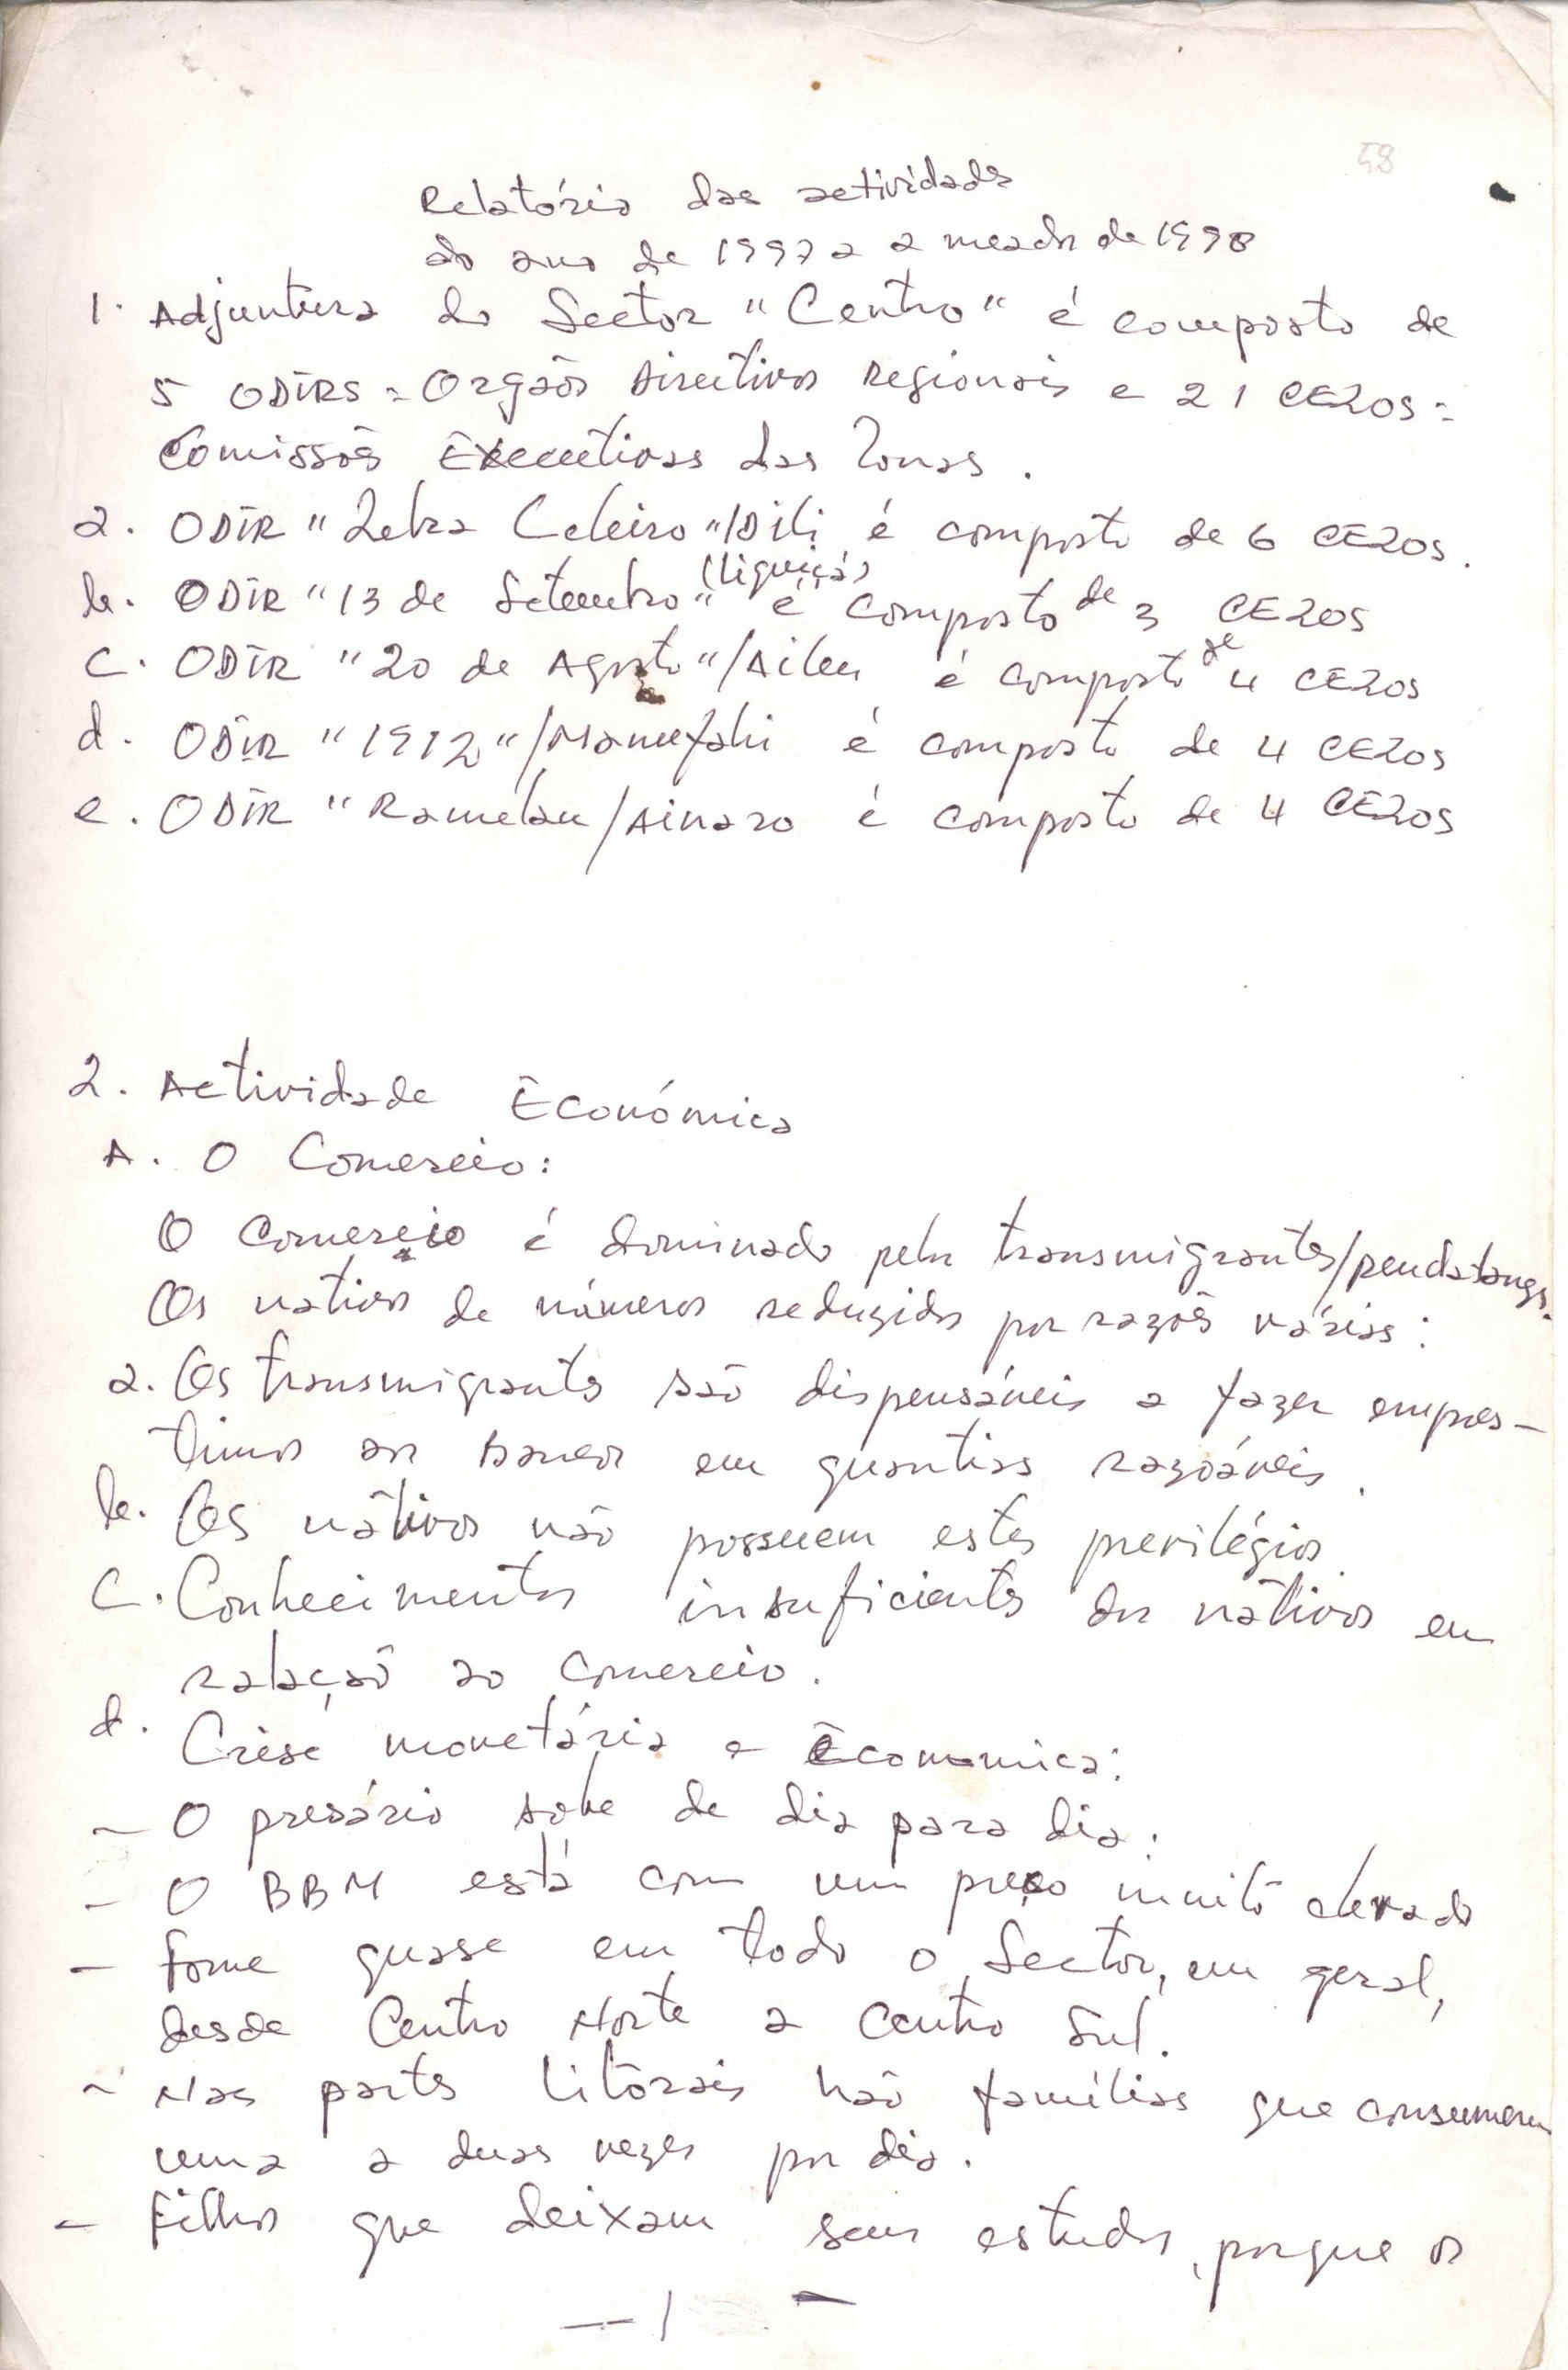 58
Relatório das actividades
do ano de 1997 a a meados de 1998
1. Adjuntura do Sector "Centro" é composto de
5 ODIRS = Orgãos Directivos Regionais e 21 CEZOS =
Comissões Executivas das Zonas.
a. ODIR "Zebra Celeiro"/Dili é composto de 6 CEZOS.
b. ODIR "13 de Setembro" (Liquiçá) é composto de 3 CEZOS
c. ODIR "20 de Agosto"/Aileu é composto de 4 CEZOS
d. ODIR "1912"/Manufahi é composto de 4 CEZOS
e. ODIR "Ramelau/Ainaro é composto de 4 CEZOS
2. Actividade Económica
A. O Comercio:
O Comercio é dominado pelos transmigrantes/pendatangs.
Os nativos de números reduzidos por razões várias:
a. Os transmigrantes são dispensáveis a fazer empres-
timos aos bancos em quantias razoáveis.
b. Os nativos não possuem estes previlégios.
C. Conhecimentos insuficientes dos nativos em
ralação ao Comercio.
d. Crise monetária e Economica:
- O presário sobe de dia para dia.
- O BBM está com um preço muito elevado
- Fome quase em todo o Sector, em geral,
desde Centro Norte a Centro Sul.
- Nas partes litorais hão famílias que consumem
uma a duas vezes por dia.
- Filhos que deixam seus estudos, porque os
- 1 -